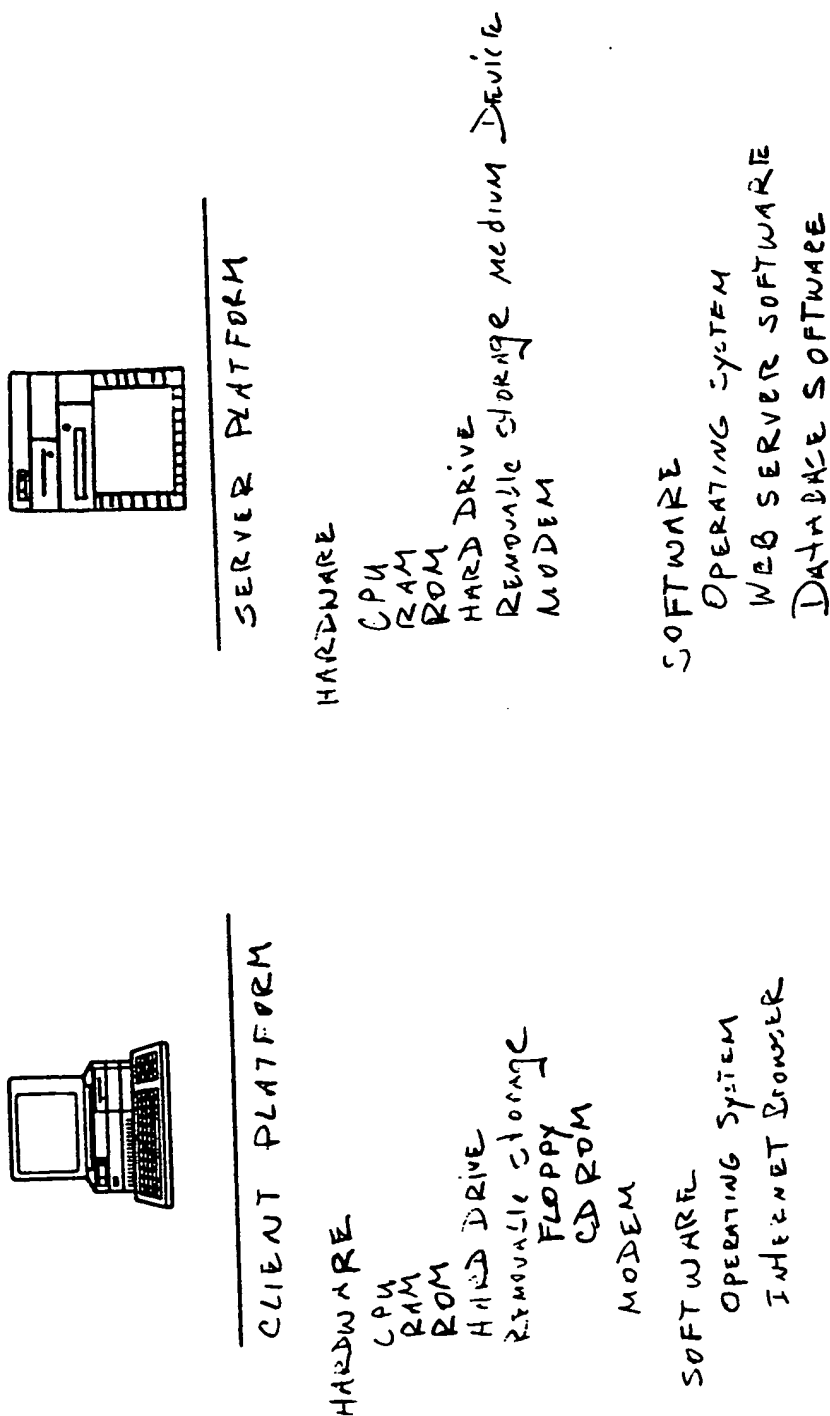 CLIENT PLATFORM
HARDWARE
CPU
RAM
ROM
HARD DRIVE
REMOVABLE STORAGE
FLOPPY
CD ROM
MODEM
SOFTWARE
OPERATING SYSTEM
INTERNET BROWSER
SERVER PLATFORM
HARDWARE
CPU
RAM
ROM
HARD DRIVE
REMOVABLE STORAGE MEDIUM DEVICE
MODEM
SOFTWARE
OPERATING SYSTEM
WEB SERVER SOFTWARE
DATABASE SOFTWARE